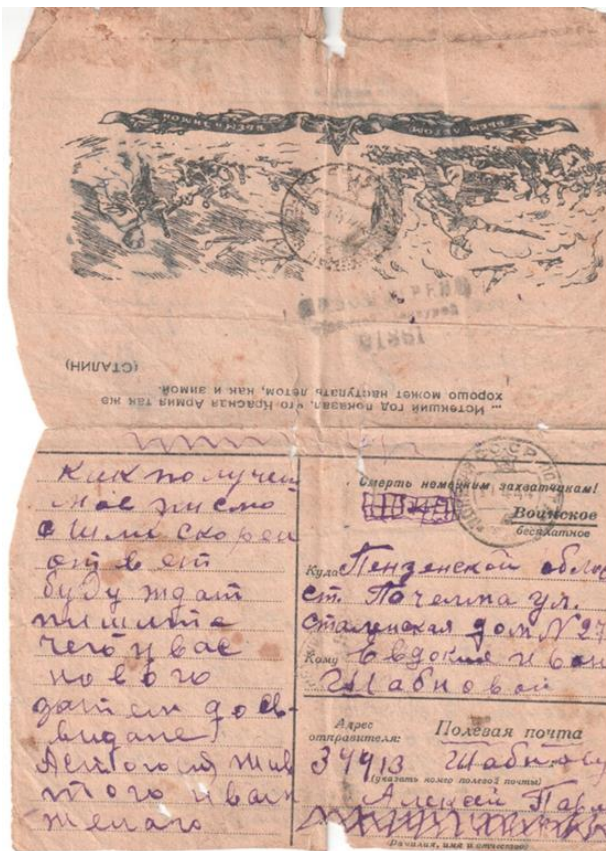 БЬЕМ ЛЕТОМ
БЬЕМ и ЗИМОЙ
... Истекший год показал, что Красная Армия так же
хорошо может наступать летом, как и зимой.
(СТАЛИН)
Как получеи
мое писмо
ошли скореи
ответ
буду ждат
пишите
чего у вас
нового
затем до св
видане
жив
того и вам
желаю
Смерть немецким захватчикам!
Воинское
бесплатное
Куда Пензенской облас
ст. Пачелма ул.
Сталинская дом N 27
Кому Евдокия Иван
Шабновой
Адрес
отправителя:
Полевая почта
Шабнову
(указать номер полевой почты)
Алексей Павл
Фамилия, имя и отчество